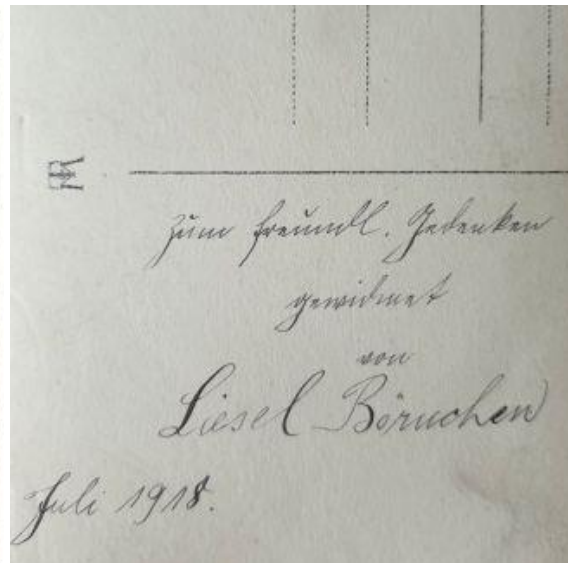 Zum freundl. Gedenken
gewidmet
von
Liesel Böruchen
Juli 1918.